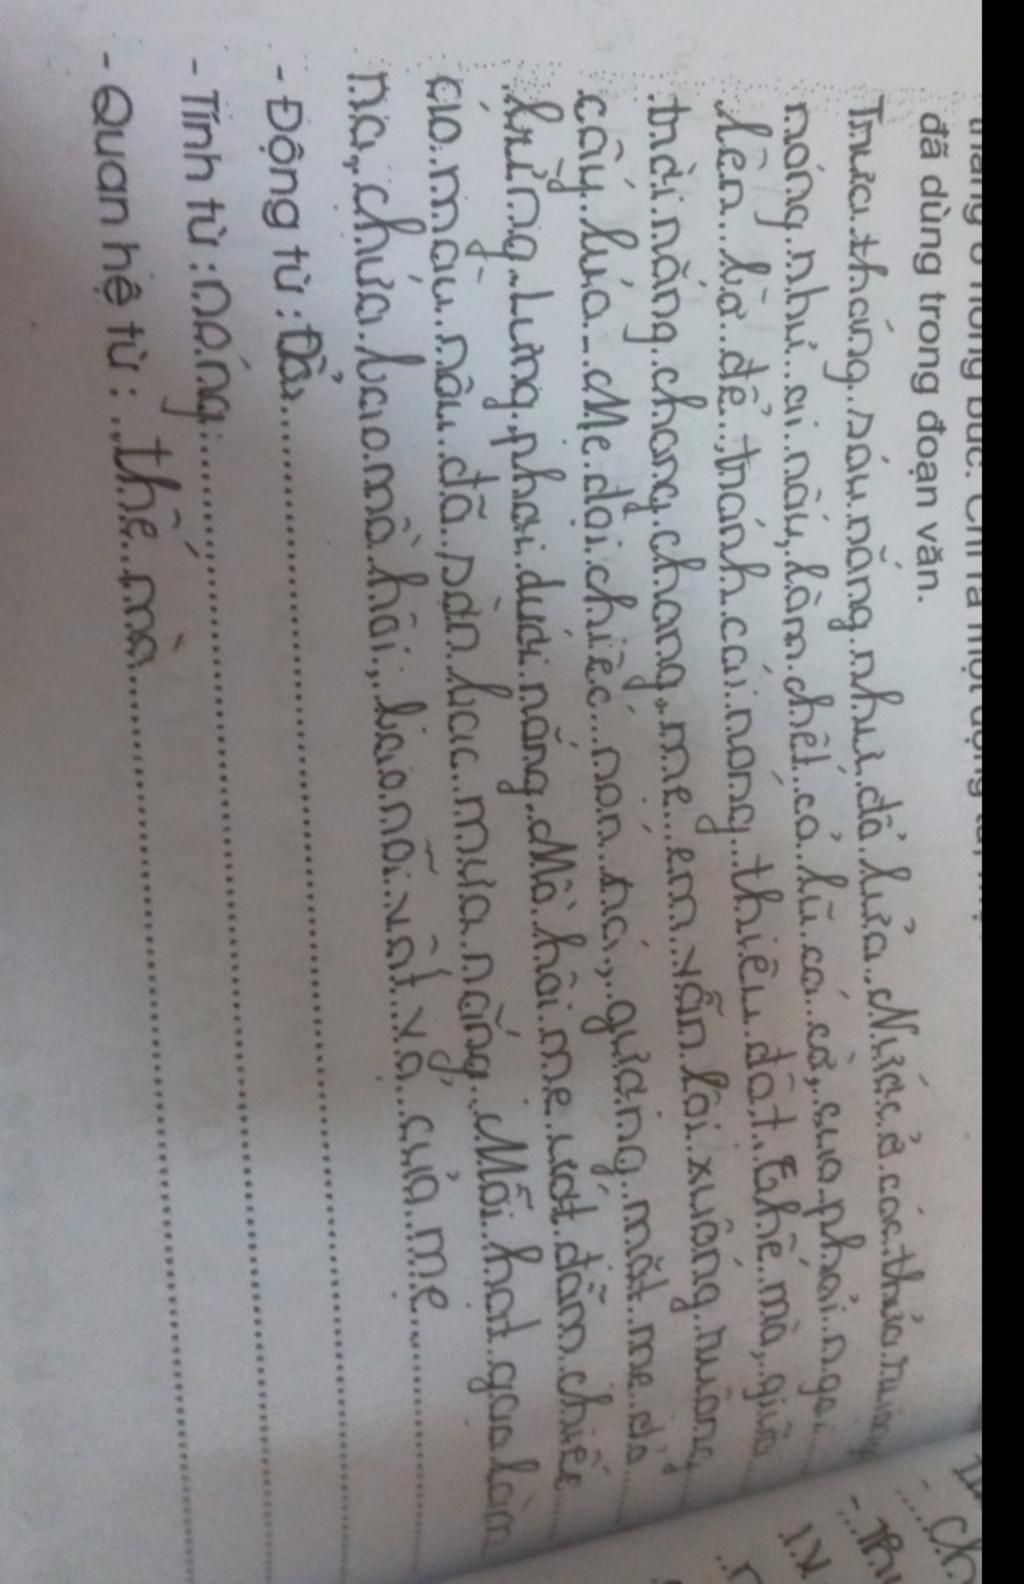 đã dùng trong đoạn văn.
Trưa tháng sáu nắng như đổ lửa. Nước ở các thửa ruộng
nóng như ai nấu, làm chết cả lũ cá cờ, cua phải ngoi
lên bờ để tránh cái nóng thiêu đốt. Thế mà, giữa
trời nắng chang chang, mẹ em vẫn lội xuống ruộng
cấy lúa. Mẹ đội chiếc nón lá, gương mặt mẹ đỏ
bừng. Lưng phơi dưới nắng. Mồ hôi mẹ ướt đẫm chiếc
áo màu nâu đã sờn bạc mưa nắng. Mỗi hạt gạo làm
ra, chứa bao mồ hôi, bao nỗi vất vả của mẹ
- Động từ: Đổ
- Tính từ: nóng
- Quan hệ từ: thế mà